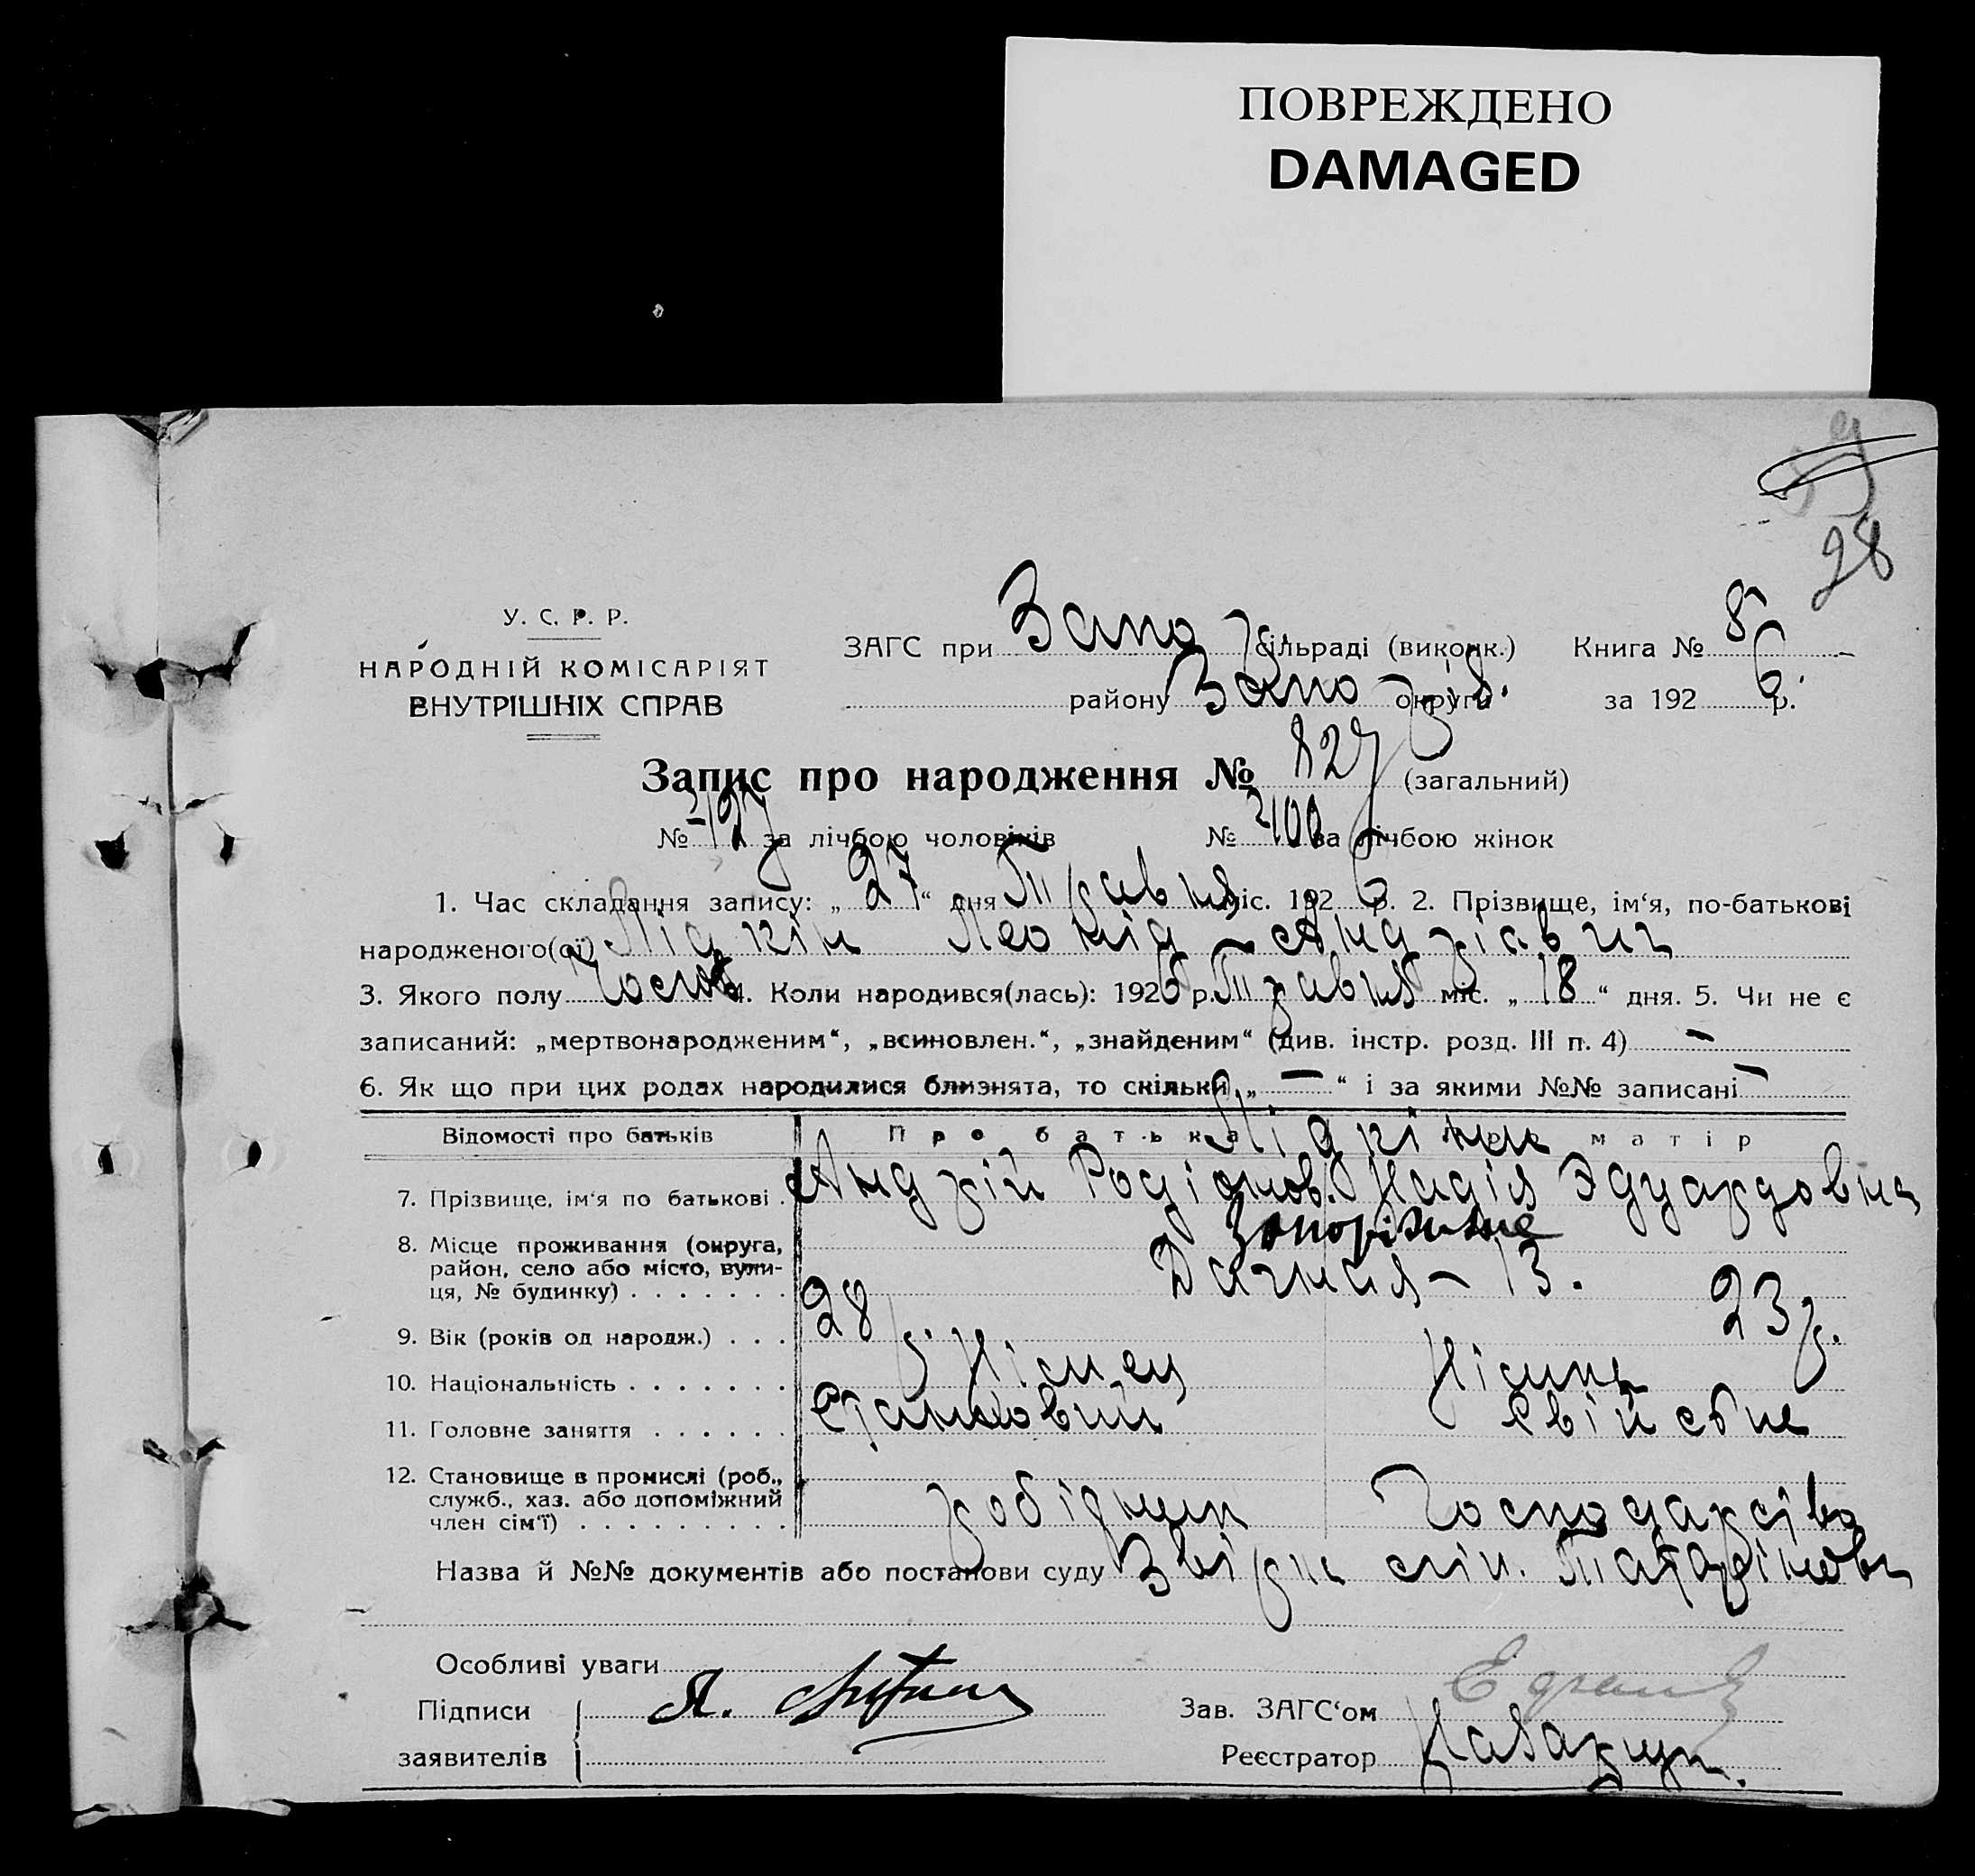 ПОВРЕЖДЕНО
DAMAGED
28
У. С. Р. Р.
НАРОДНІЙ КОМІСАРІЯТ
ВНУТРІШНІХ СПРАВ
ЗАГС при Запор сільраді (виконк.) Книга № 8
району Запоріз. округи за 1926 р.
Запис про народження № 827 (загальний)
№ 427 за лічбою чоловіків № 400 за лічбою жінок
1. Час складання запису: „27“ дня Травня міс. 1926 р. 2. Прізвище, ім‘я, по-батькові
народженого(ої) Лідкін Леонід - Андрієвич
3. Якого полу Чолов 4. Коли народився(лась): 1926 р. Травня міс. „18“ дня. 5. Чи не є
записаний: „мертвонародженим“, „всиновлен.“, „знайденим“ (див. інстр. розд. III п. 4) —
6. Як що при цих родах народилися близнята, то скільки „—“ і за якими №№ записані —
Відомості про батьків Про батька Про матір
Лідкіни
7. Прізвище, ім‘я по батькові . Андрій Родіонов. Надія Эдуардовна
8. Місце проживання (округа, район, село або місто, вулиця, № будинку) . . . . . . . Запоріжже
Дачная – 13.
9. Вік (років од народж.) . . . 28 р. 23 р.
10. Національність . . . . . . . Німец Німка
11. Головне заняття . . . . . . Свійське
12. Становище в промислі (роб., служб., хаз. або допоміжний член сім‘ї) . . . . . . . . . робідник Господарство
Назва й №№ документів або постанови суду
Особливі уваги
Підписи
заявителів
Зав. ЗАГС‘ом
Реєстратор